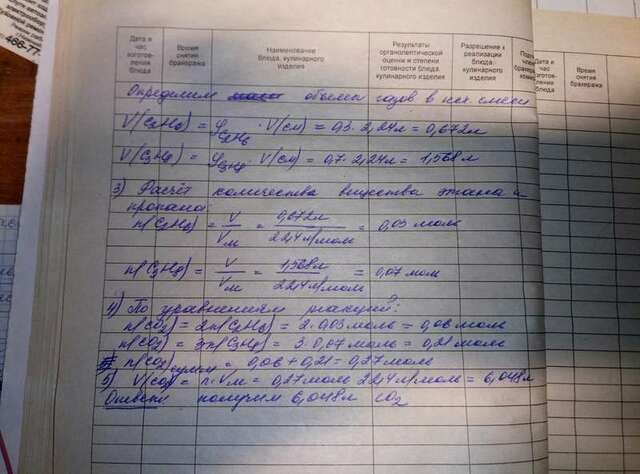 466-77
Дата и час изготов-ления блюда
Время снятия бракеража
Наименование блюда, кулинарного изделия
Результаты органолептической оценки и степени готовности блюда, кулинарного изделия
Разрешение к реализации блюда, кулинарного изделия
Дата и час изготов-ления блюда
Время снятия бракеража
Определим объемы газов в исх. смеси
V(C2H6) = φC2H6 · V(см) = 0,3 · 2,24л = 0,672л
V(C3H8) = φC3H8 · V(см) = 0,7 · 2,24л = 1,568л
3) Расчёт количества вещества этана и
пропана:
n(C2H6) = V/Vм = 0,672л/22,4л/моль = 0,03 моль
n(C3H8) = V/Vм = 1,568л/22,4л/моль = 0,07 моль
4) По уравнениям реакций:
n(CO2) = 2n(C2H6) = 2 · 0,03моль = 0,06 моль
n(CO2) = 3n(C3H8) = 3 · 0,07моль = 0,21 моль
n(CO2) сумм = 0,06 + 0,21 = 0,27моль
5) V(CO2) = n · Vм = 0,27моль · 22,4л/моль = 6,048л
Ответ: получим 6,048л CO2